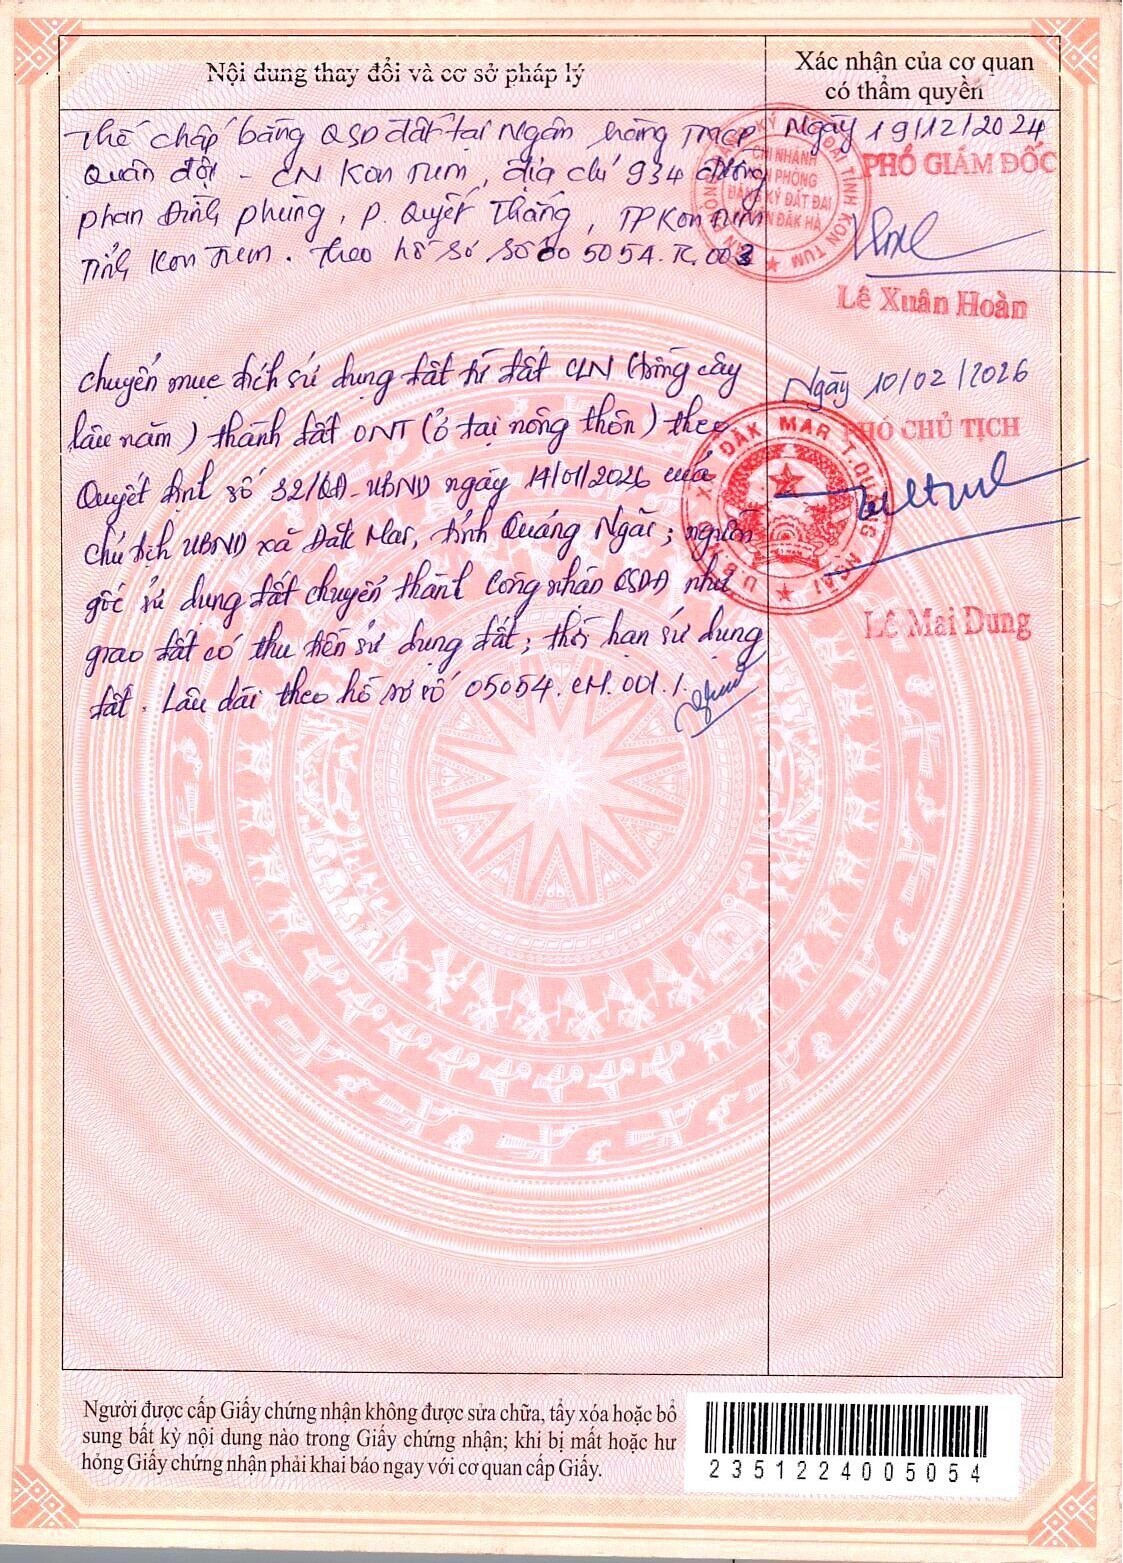 Nội dung thay đổi và cơ sở pháp lý
Xác nhận của cơ quan
có thẩm quyền
Thế chấp bằng QSD đất tại Ngân hàng TMCP
Quân đội - CN Kon Tum, địa chỉ 934 đường
Phan Đình Phùng, P. Quyết Thắng, TP Kon Tum
Tỉnh Kon Tum. Theo hồ sơ số 005054.TC.003
Ngày 19/12/2024
PHÓ GIÁM ĐỐC
CHI NHÁNH
VĂN PHÒNG
ĐĂNG KÝ ĐẤT ĐAI
HUYỆN ĐĂK HÀ
TỈNH KON TUM
Lê Xuân Hoàn
Chuyển mục đích sử dụng đất từ đất CLN (trồng cây
lâu năm) thành đất ONT (ở tại nông thôn) theo
Quyết định số 32/QĐ-UBND ngày 14/01/2026 của
Chủ tịch UBND xã Đăk Mar, tỉnh Quảng Ngãi; nguồn
gốc sử dụng đất chuyển thành Công nhận QSDĐ như
giao đất có thu tiền sử dụng đất; thời hạn sử dụng
đất. Lâu dài theo hồ sơ số 05054.CM.001./.
Ngày 10/02/2026
PHÓ CHỦ TỊCH
U.B.N.D XÃ ĐĂK MAR T.QUẢNG NGÃI
Lê Mai Dung
Người được cấp Giấy chứng nhận không được sửa chữa, tẩy xóa hoặc bổ
sung bất kỳ nội dung nào trong Giấy chứng nhận; khi bị mất hoặc hư
hỏng Giấy chứng nhận phải khai báo ngay với cơ quan cấp Giấy.
2351224005054